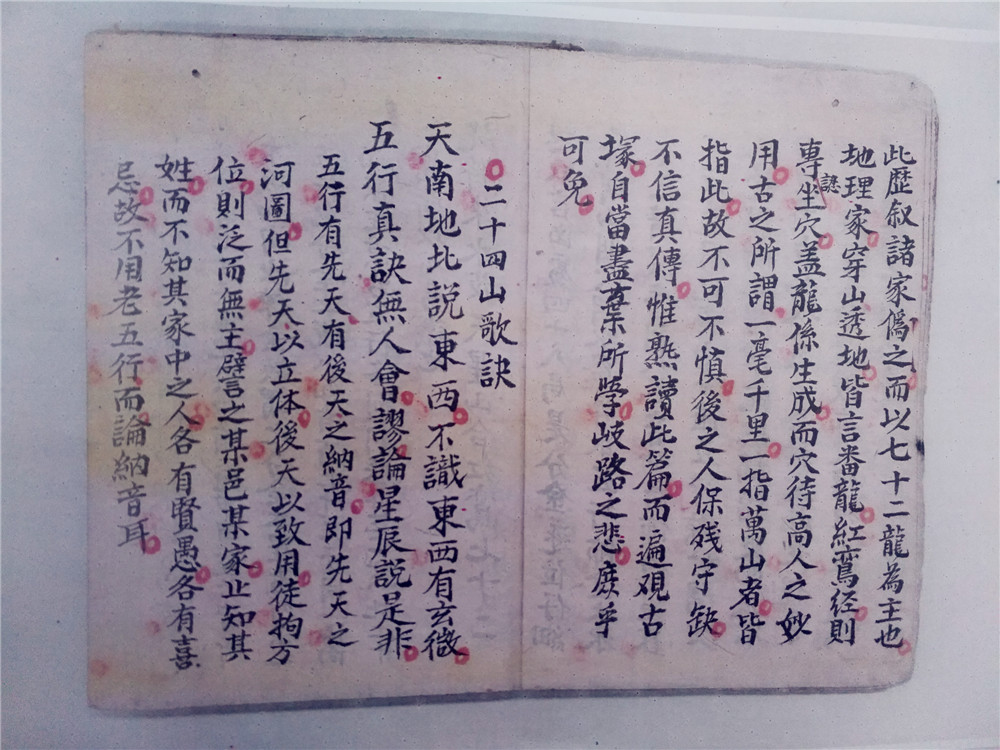 此歷叙諸家偽之而以七十二龍為主也
地理家穿山透地皆言番龍紅鸞经則
專坐穴盖龍係生成而穴待高人之妙
用古之所謂一毫千里一指萬山者皆
指此故不可不慎後之人保残守缺
不信真傳惟熟讀此篇而遍观古
塚自當盡棄所学岐路之悲庶乎
可免
二十四山歌訣
天南地北説東西不識東西有玄微
五行真訣無人會謬論星辰説是非
五行有先天有後天之納音即先天之
河圖但先天以立体後天以致用徒拘方
位則泛而無主譬言之某邑某家止知其
姓而不知其家中之人各有賢愚各有喜
忌故不用老五行而論納音耳